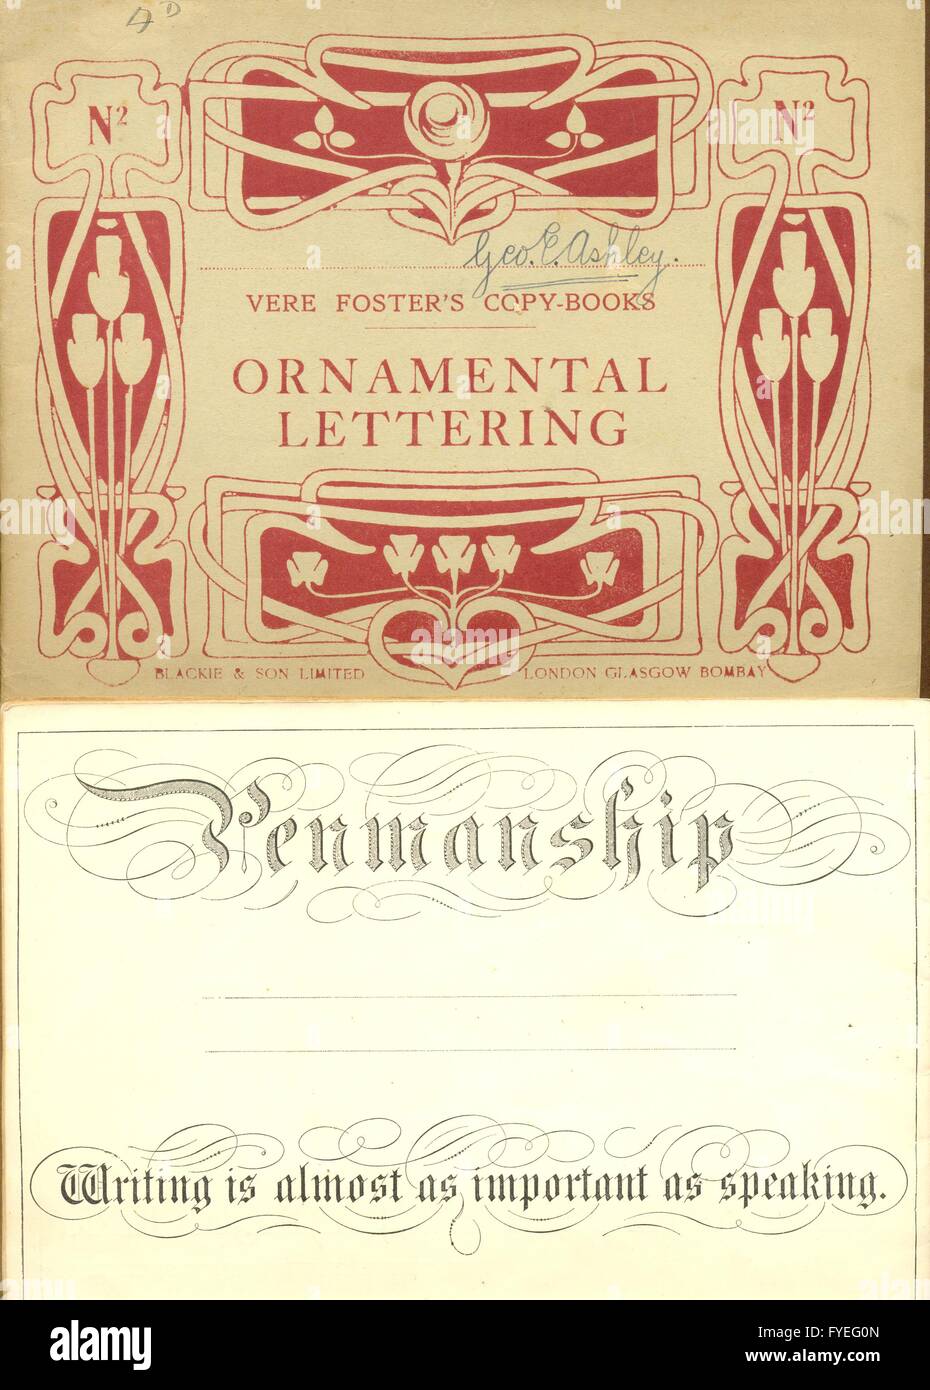 4D
N2
N2
Geo. E. Ashley.
VERE FOSTER'S COPY-BOOKS
ORNAMENTAL
LETTERING
BLACKIE & SON LIMITED
LONDON GLASGOW BOMBAY
Penmanship
Writing is almost as important as speaking.
alamy
Image ID: FYEG0N
www.alamy.com